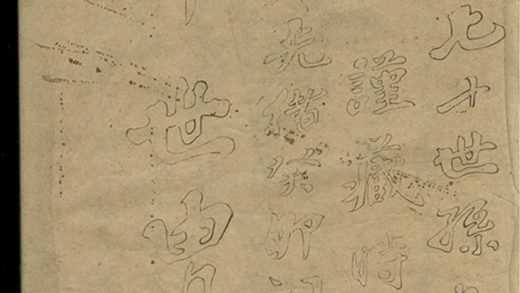 十世孫
謹藏時
光緒癸卯
世